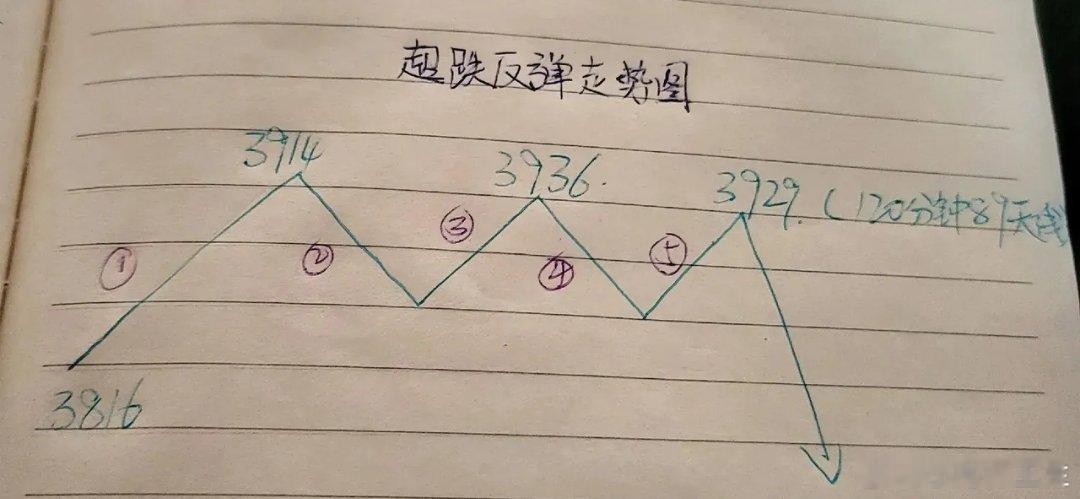 超跌反弹走势图
3914
3936.
3929.(120分钟89天线
①
②
③
④
⑤
3816